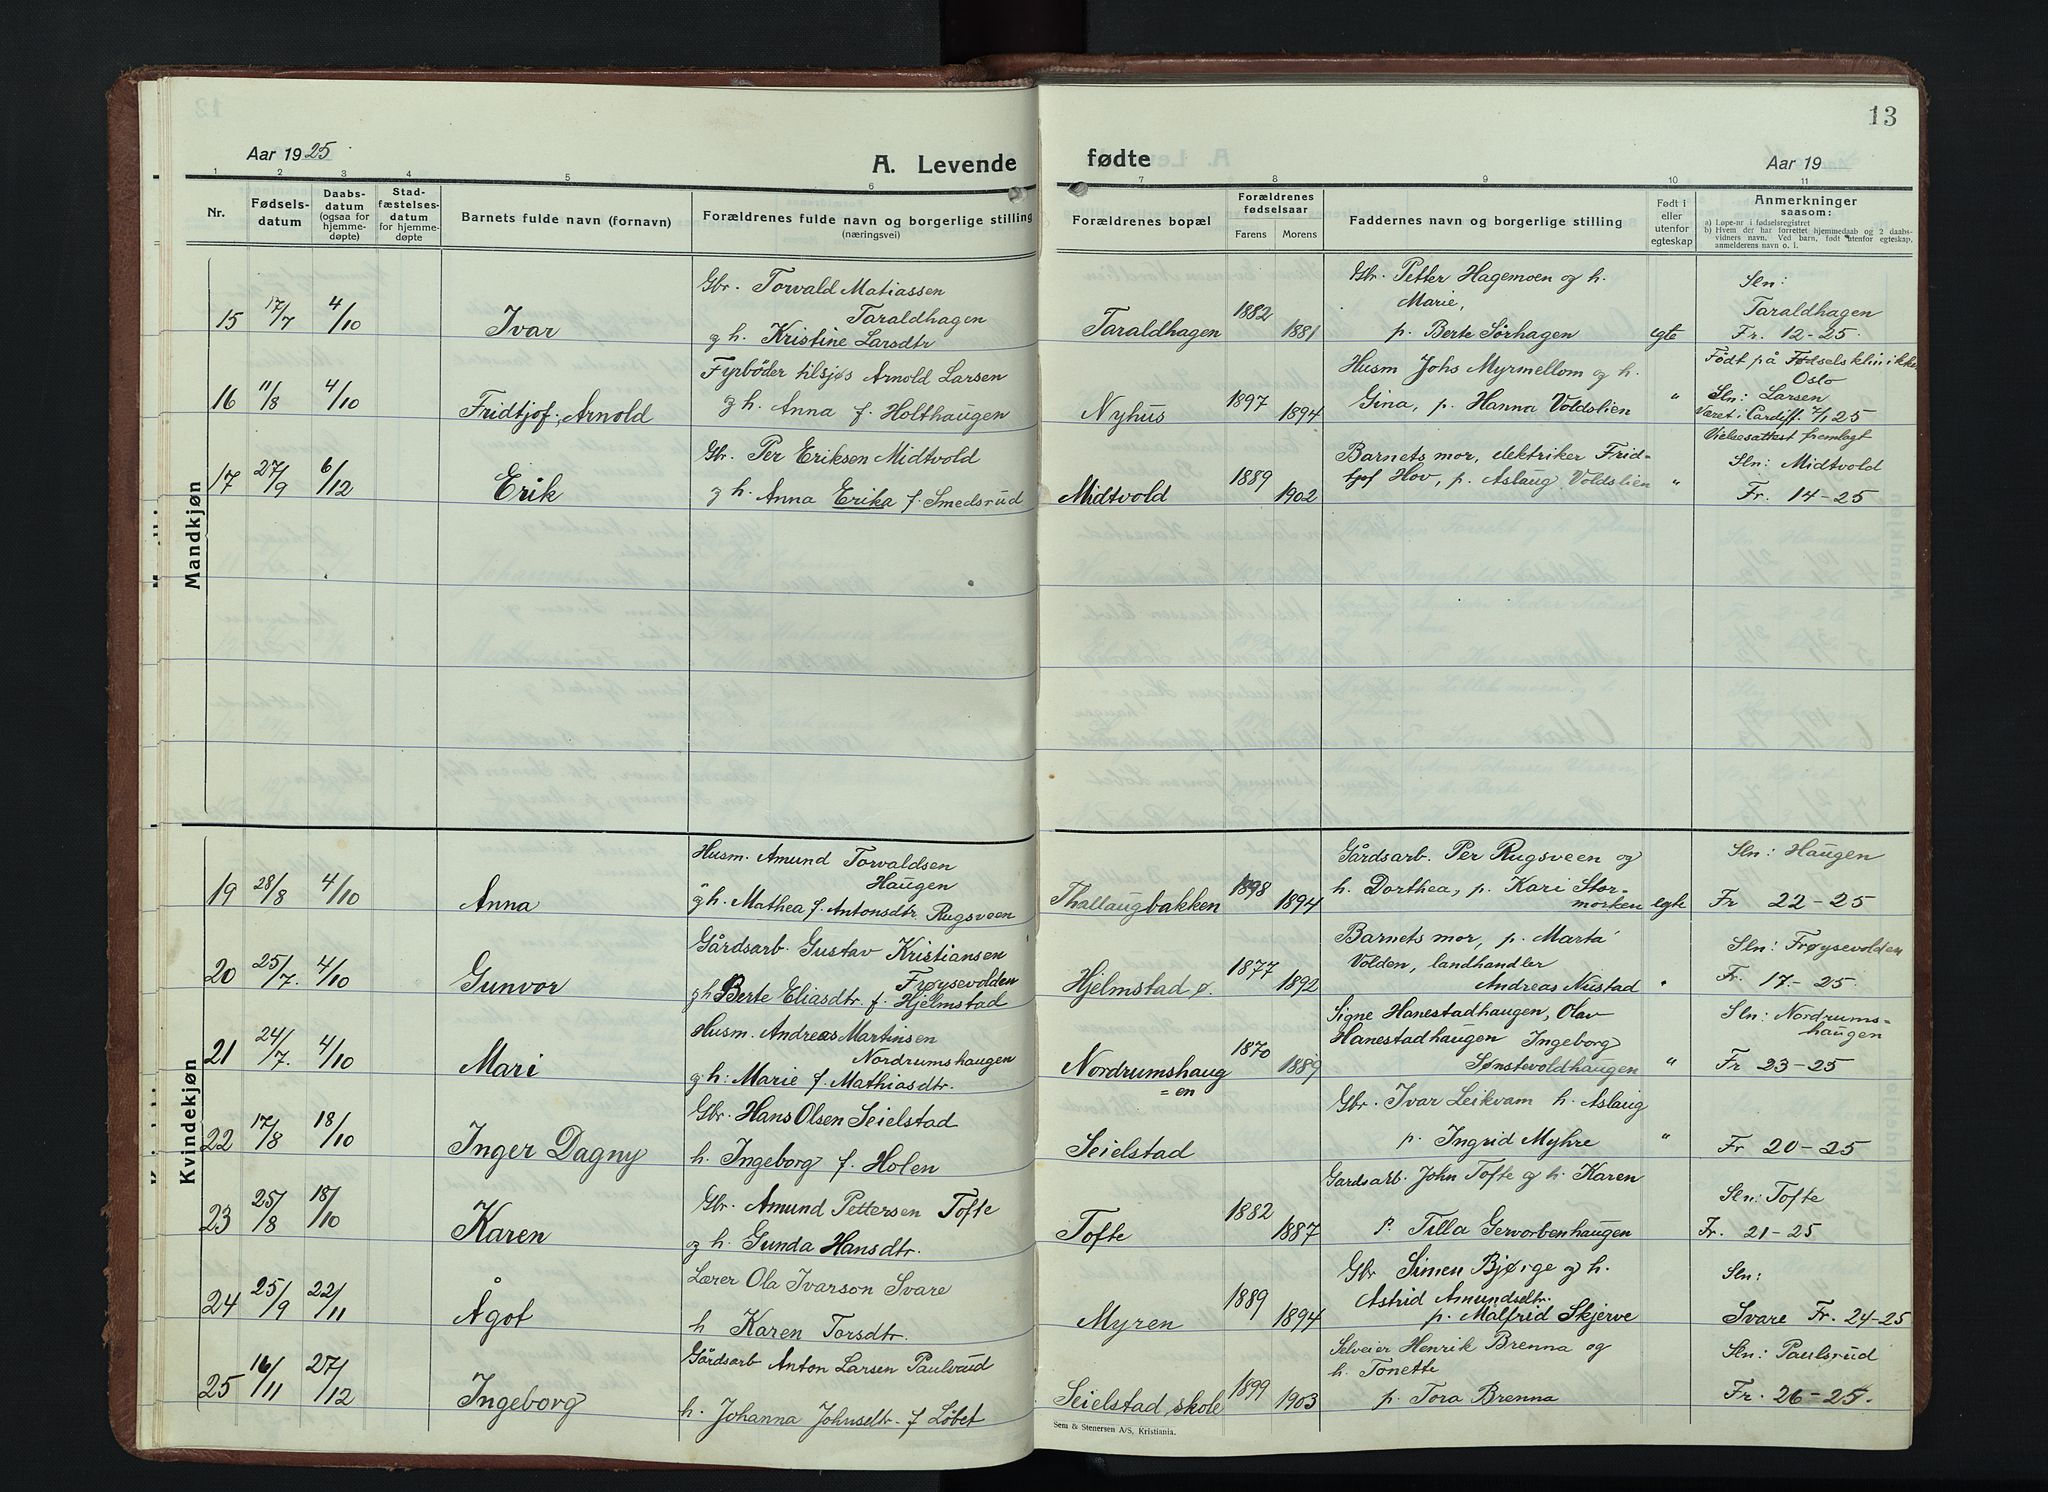 13
Aar 1925
A. Levende
fødte
Aar 19
1 2 3 4 5 6 7 8 9 10 11
Nr.
Fødsels-
datum
Daabs-
datum
(ogsaa for
hjemme-
døpte)
Stad-
fæstelses-
datum
for hjemme-
døpte
Barnets fulde navn (fornavn)
Forældrenes fulde navn og borgerlige stilling
(næringsvei)
Forældrenes bopæl
Forældrenes
fødselsaar
Farens Morens
Faddernes navn og borgerlige stilling
Født i
eller
utenfor
egteskap
Anmerkninger
saasom:
a) Løpe-nr i fødselsregistret
b) Hvem der har forrettet hjemmedaab og 2 daabs-
vidners navn. Ved barn, født utenfor egteskap,
anmelderens navn o. l.
Mandkjøn
15 17/7 4/10 Ivar
Gbr. Torvald Matiassen
Taraldhagen
og h. Kristine Larsdtr
Taraldhagen 1882 1881
Gbr. Petter Hagemoen og h.
Marie,
p. Berte Sørhagen
egte
Sln:
Taraldhagen
Fr. 12-25
16 11/8 4/10 Fridtjof Arnold
Fyrbøder tilsjøs Arnold Larsen
og h. Anna f. Holthaugen
Nyhus 1897 1894
Husm Johs Myrmellom og h.
Gina, p. Hanna Voldslien
"
Født på Fødselsklinikken
Oslo
Sln: Larsen
Været i Cardiff. 7/1 25
Vielsesattest fremlagt
17 27/9 6/12 Erik
Gbr. Per Eriksen Midtvold
og h. Anna Erika f. Smedsrud
Midtvold 1889 1902
Barnets mor, elektriker Frid-
tjof Hov, p. Aslaug Voldslien
"
Sln: Midtvold
Fr. 14-25
Kvindekjøn
19 28/8 4/10 Anna
Husm. Amund Torvaldsen
Haugen
og h. Mathea f. Antonsdtr Rugsveen
Thallaugbakken 1898 1894
Gårdsarb. Per Rugsveen og
h. Dorthea, p. Kari Stor-
morken
egte
Sln: Haugen
Fr 22-25
20 25/7. 4/10 Gunvor
Gårdsarb. Gustav Kristiansen
Frøysevolden
og h Berte Eliasdtr. f. Hjelmstad
Hjelmstad ø. 1877 1892
Barnets mor, p. Marta
Volden, landhandler
Andreas Nustad
"
Sln: Frøysevolden
Fr. 17-25.
21 24/7. 4/10 Mari
Husm. Andreas Martinsen
Nordrumshaugen
og h: Marie f. Mathiasdtr.
Nordrumshaug
=en
1870 1889
Signe Hanestadhaugen, Olav
Hanestadhaugen Ingeborg
Sønstevoldhaugen
"
Sln: Nordrums=
haugen
Fr 23-25
22 17/8 18/10 Inger Dagny
Gbr. Hans Olsen Seielstad
h. Ingeborg f. Holen
Seielstad
Gbr. Ivar Leikvam h. Aslaug
p. Ingrid Myhre
"
Fr 20-25
23 25/8 18/10 Karen
Gbr. Amund Pettersen Tofte
og h. Gunda Hansdtr.
Tofte 1882 1887
Gardsarb. John Tofte og h. Karen
p. Tilla Gervorbenhaugen
Sln: Tofte
Fr. 21-25
24 25/9 22/11 Ågot
Lærer Ola Ivarson Svare
h Karen Torsdtr.
Myren 1889 1894
Gbr Simen Bjørge og h.
Astrid Amundsdtr.
p. Målfrid Skjerve
Sln:
Svare Fr. 24-25
25 16/11 27/12 Ingeborg
Gårdsarb Anton Larsen Paulsrud
h. Johanna Johnsdtr. f Løbet
Seielstad skole 1899 1903
Selveier Henrik Brenna og
h. Tonette
p. Tora Brenna
Sln: Paulsrud
Fr. 26-25.
Sem & Stenersen A/S, Kristiania.